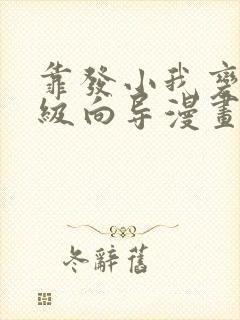 靠發小我變
級向导漫畫
冬辭舊